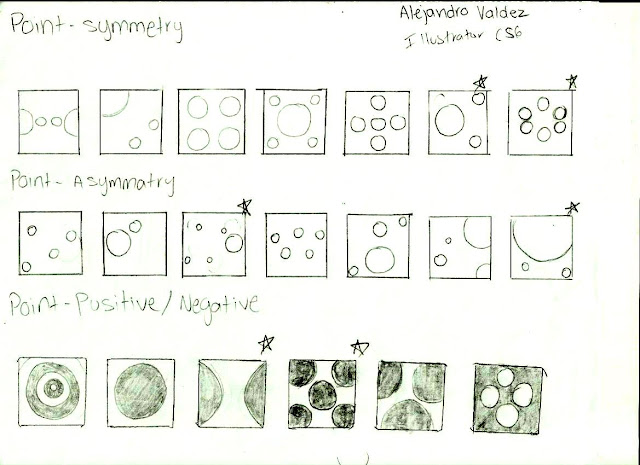 Point-symmetry
Alejandro Valdez
Illustrator CS6
Point-Asymmatry
Point-Pusitive/Negative